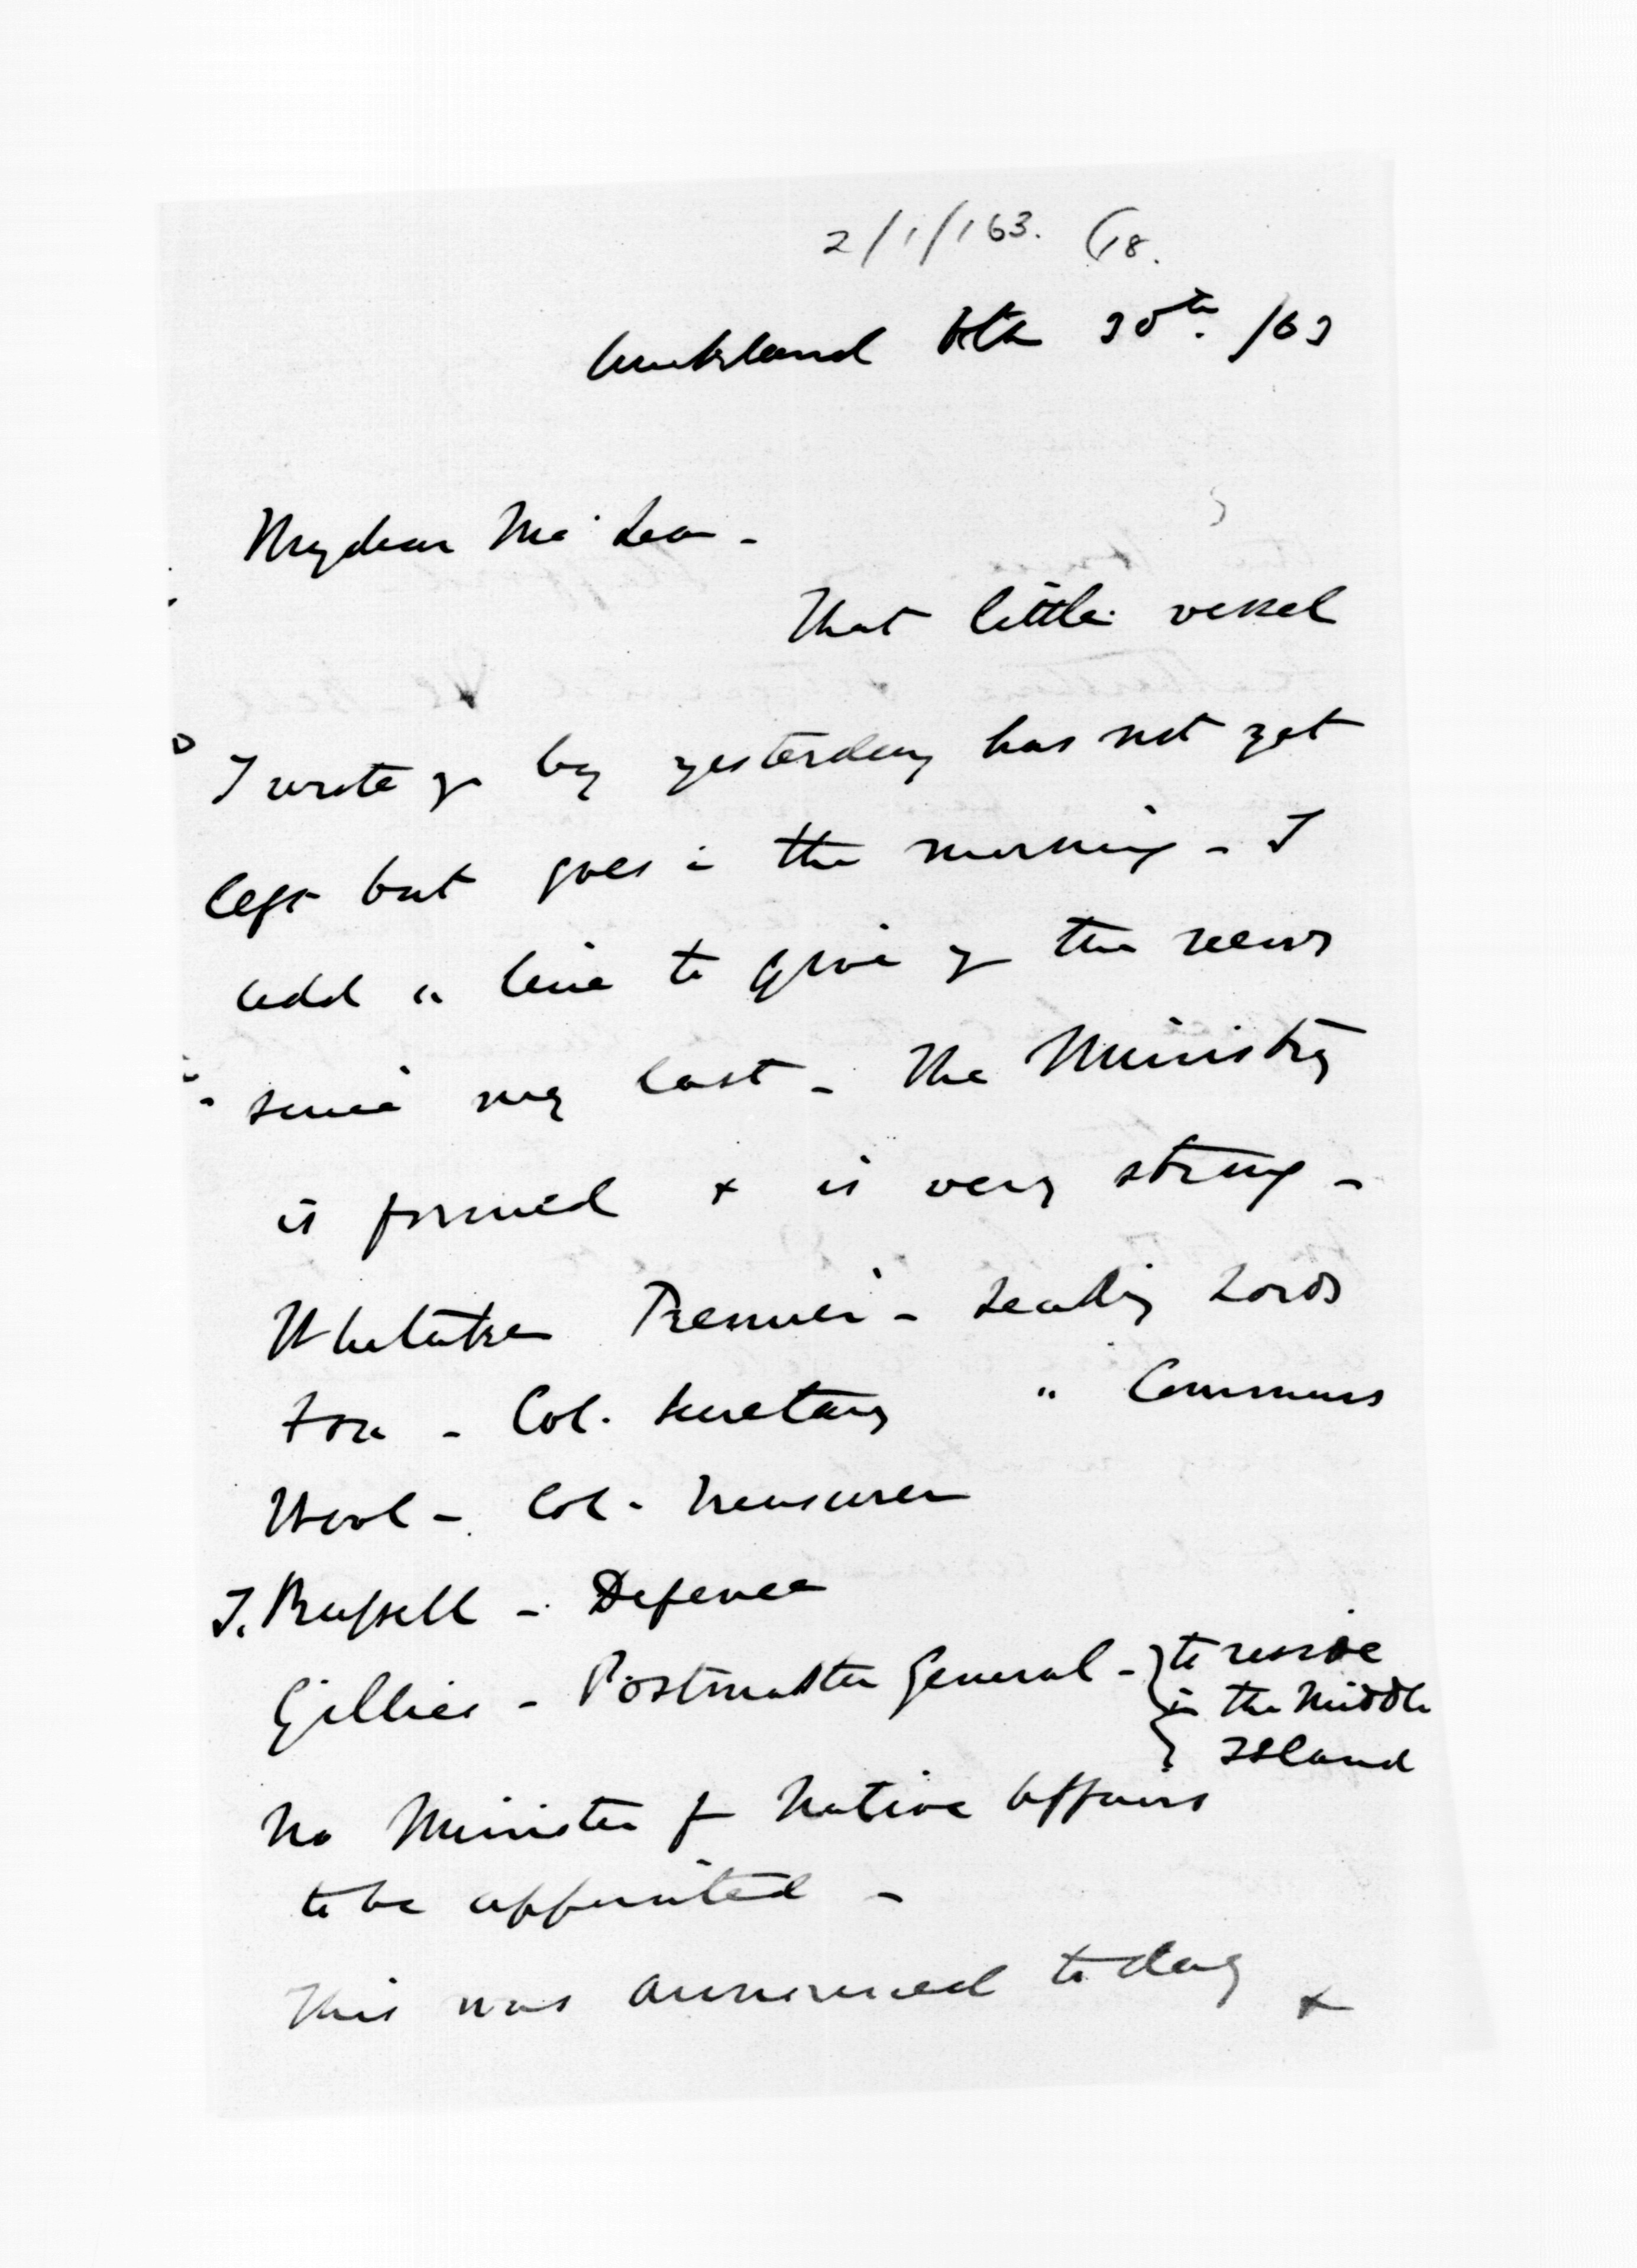 2/1/163. (18.
Auckland Octr 30th. /63
My dear McLean -
That little vessel
I wrote yr by yesterday has not yet
left but goes in the morning - I
add a line to give yr the news
since my last - The Ministry
is formed & is very strong -
Whitaker Premier - Leading Lords
Fox - Col. Secretary " Commons
Wood - Col. Treasurer
T. Russell - Defence
Gillies - Postmaster General - } to reside
in the Middle
Island
No Minister for Native Affairs
to be appointed -
This was announced to day &